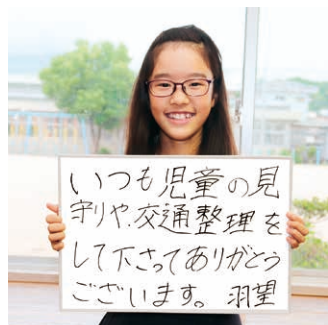 いつも児童の見
守りや、交通整理を
して下さってありがとう
ございます。 羽望